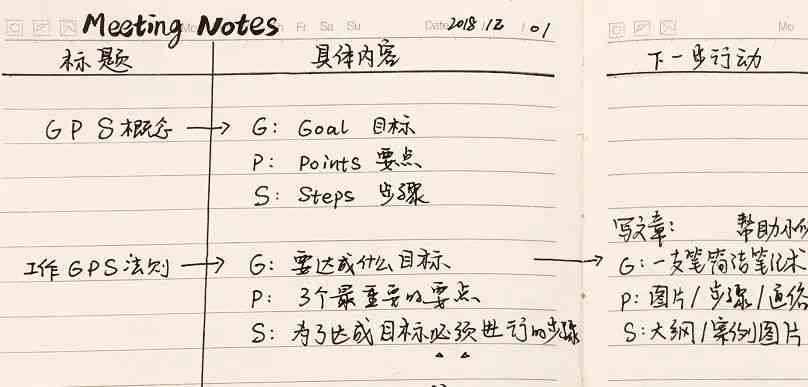 Meeting Notes Mo Fr Sa Su Date 2018/12/01 Mo
标题 具体内容 下一步行动
GPS概念 → G: Goal 目标
P: Points 要点
S: Steps 步骤
写文章: 帮助小
工作GPS法则 → G: 要达成什么目标 → G: 一支笔简洁笔记术
P: 3个最重要的要点 P: 图片/步骤/通俗
S: 为了达成目标必须进行的步骤 S: 大纲/案例图片